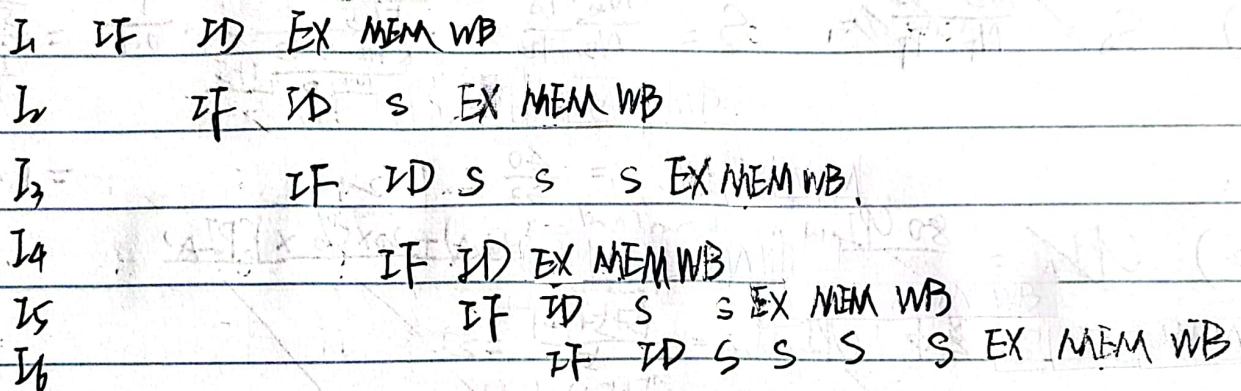 I1 IF ID EX MEM WB
I2 IF ID S EX MEM WB
I3 IF ID S S S EX MEM WB
I4 IF ID EX MEM WB
I5 IF ID S S EX MEM WB
I6 IF ID S S S S EX MEM WB